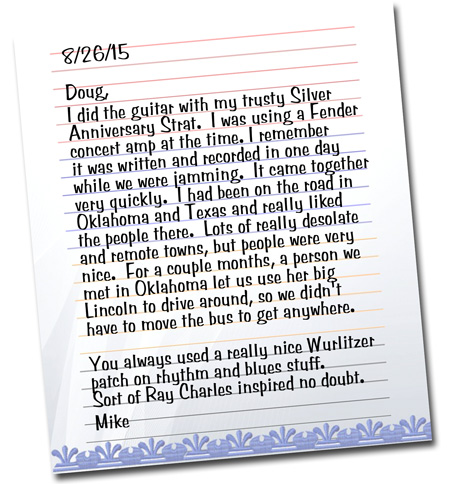 8/26/15
Doug,
I did the guitar with my trusty Silver
Anniversary Strat. I was using a Fender
concert amp at the time. I remember
it was written and recorded in one day
while we were jamming. It came together
very quickly. I had been on the road in
Oklahoma and Texas and really liked
the people there. Lots of really desolate
and remote towns, but people were very
nice. For a couple months, a person we
met in Oklahoma let us use her big
Lincoln to drive around, so we didn't
have to move the bus to get anywhere.
You always used a really nice Wurlitzer
patch on rhythm and blues stuff.
Sort of Ray Charles inspired no doubt.
Mike